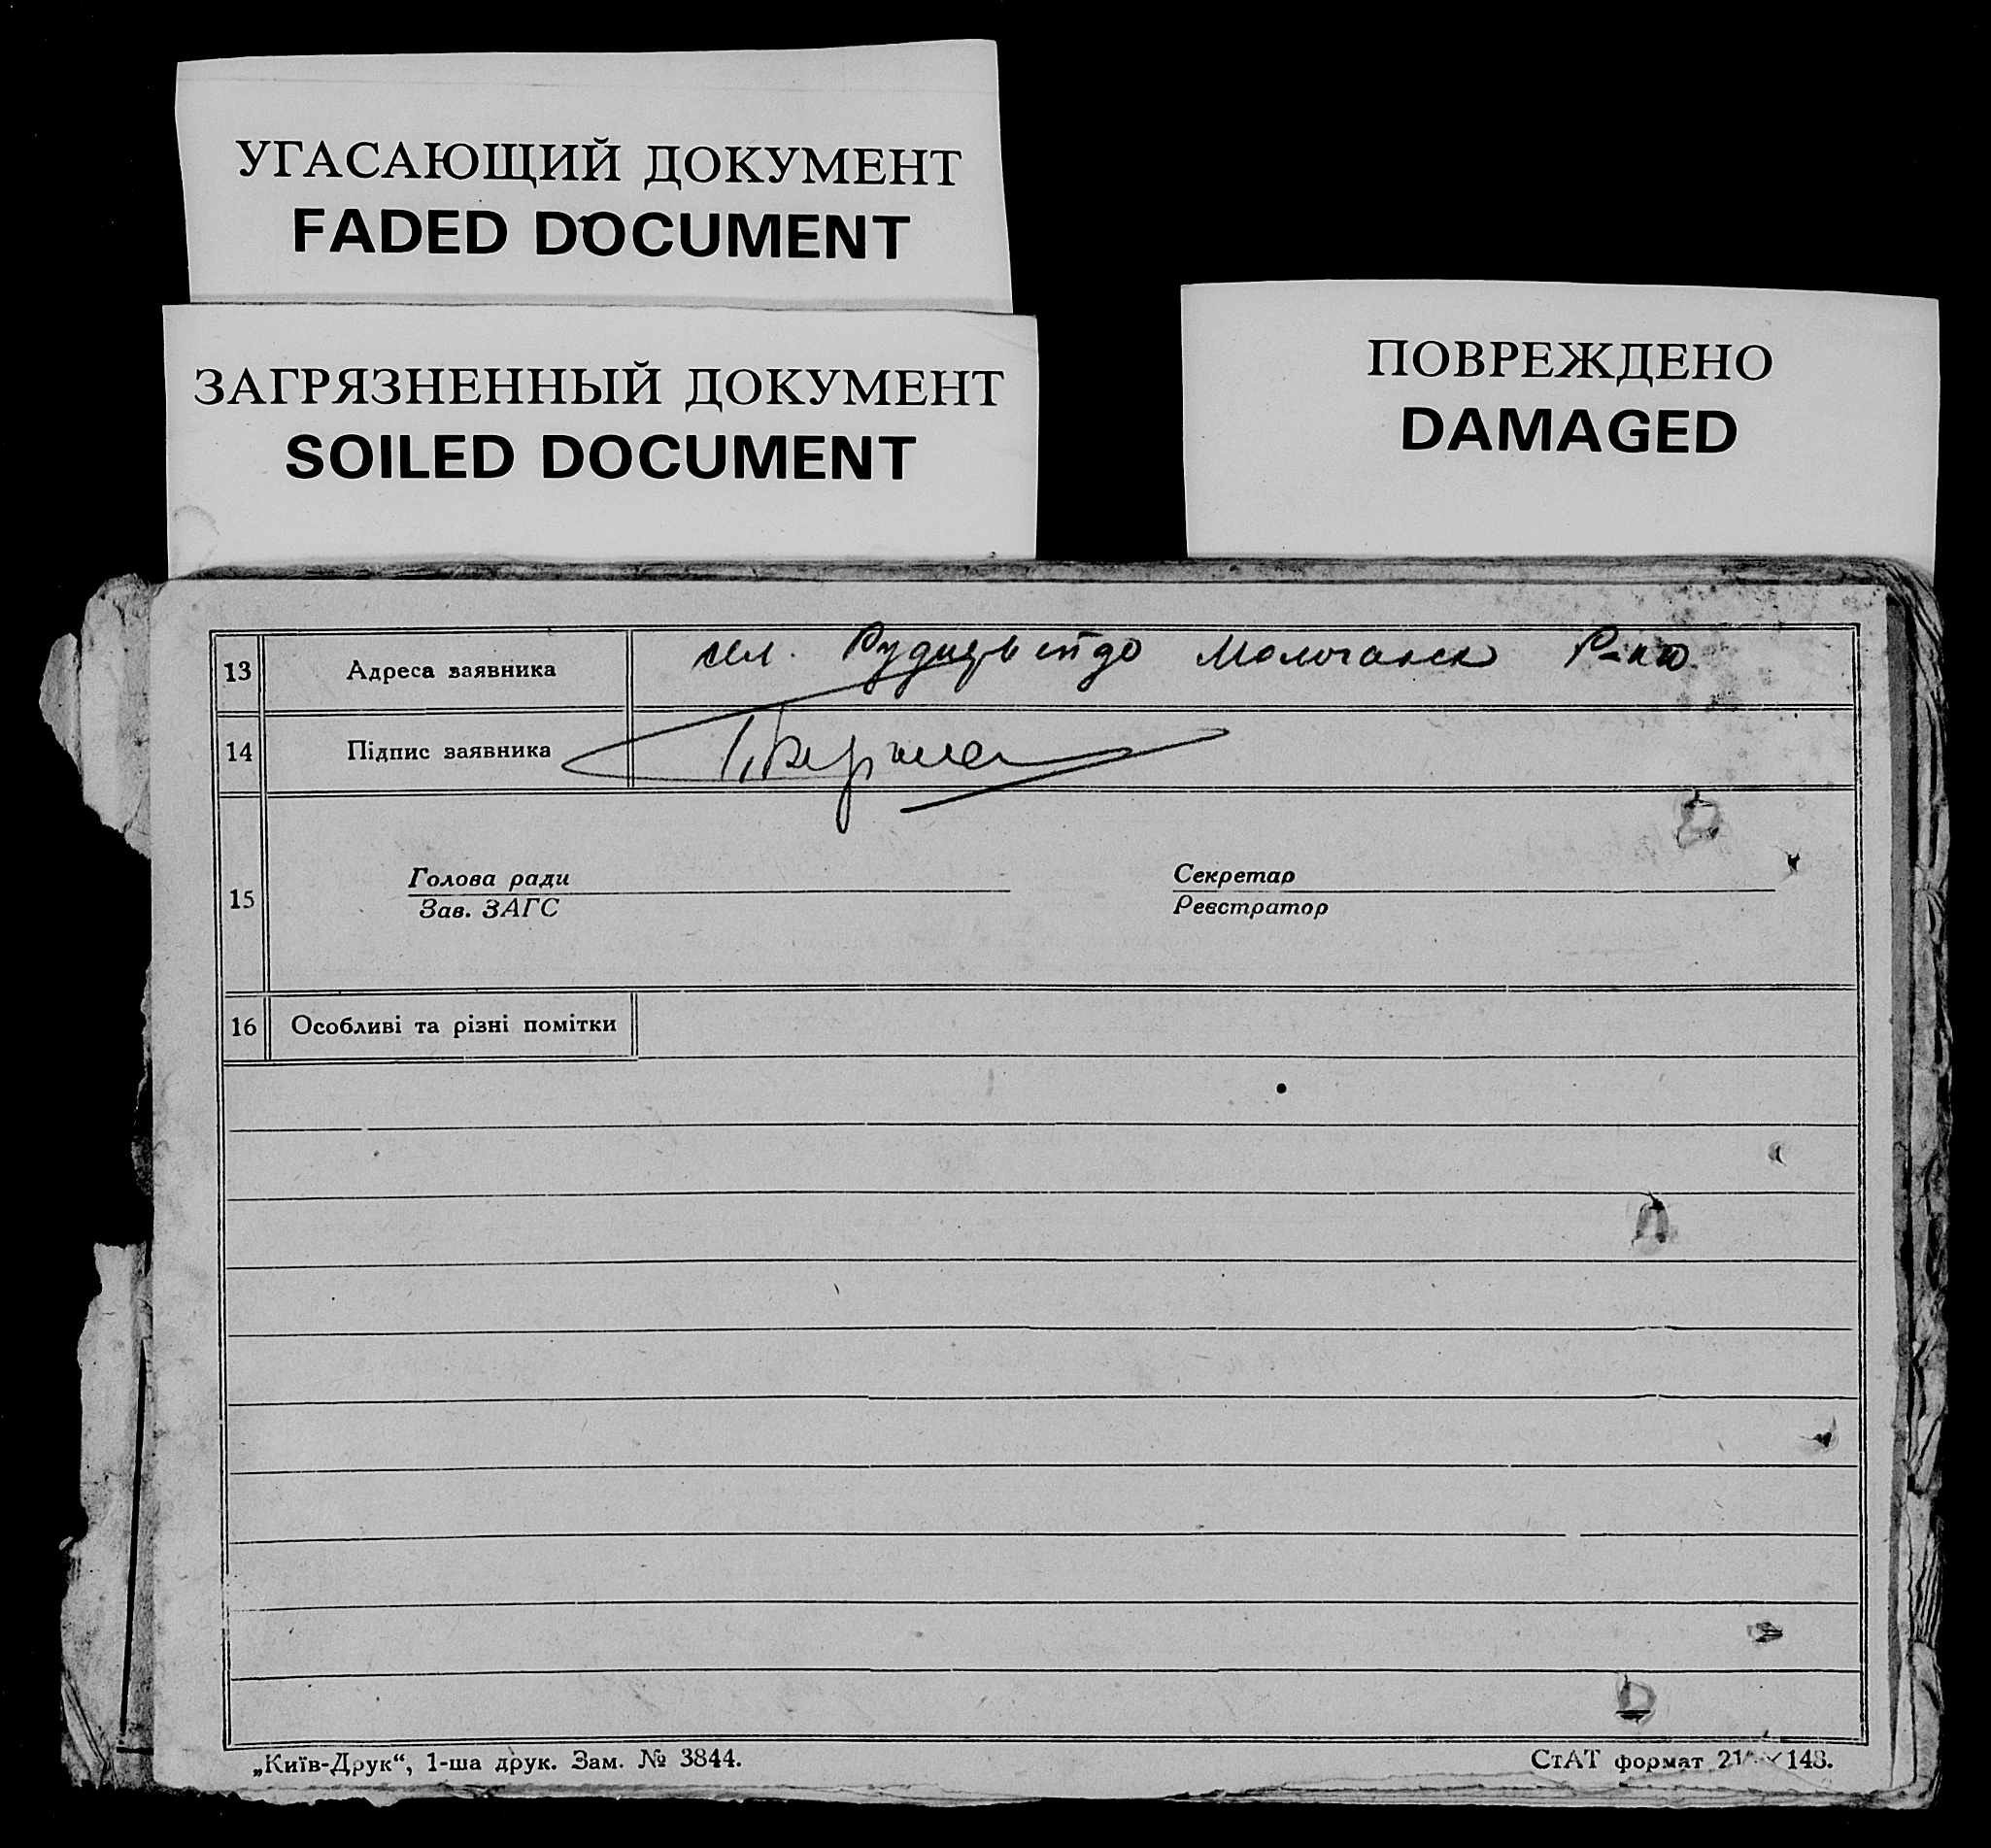 УГАСАЮЩИЙ ДОКУМЕНТ
FADED DOCUMENT
ЗАГРЯЗНЕННЫЙ ДОКУМЕНТ
SOILED DOCUMENT
ПОВРЕЖДЕНО
DAMAGED
13 Адреса заявника сел. Молочанск
14 Підпис заявника
15
Голова ради Секретар
Зав. ЗАГС Реєстратор
16 Особливі та різні помітки
„Київ-Друк“, 1-ша друк. Зам. № 3844. СтАТ формат